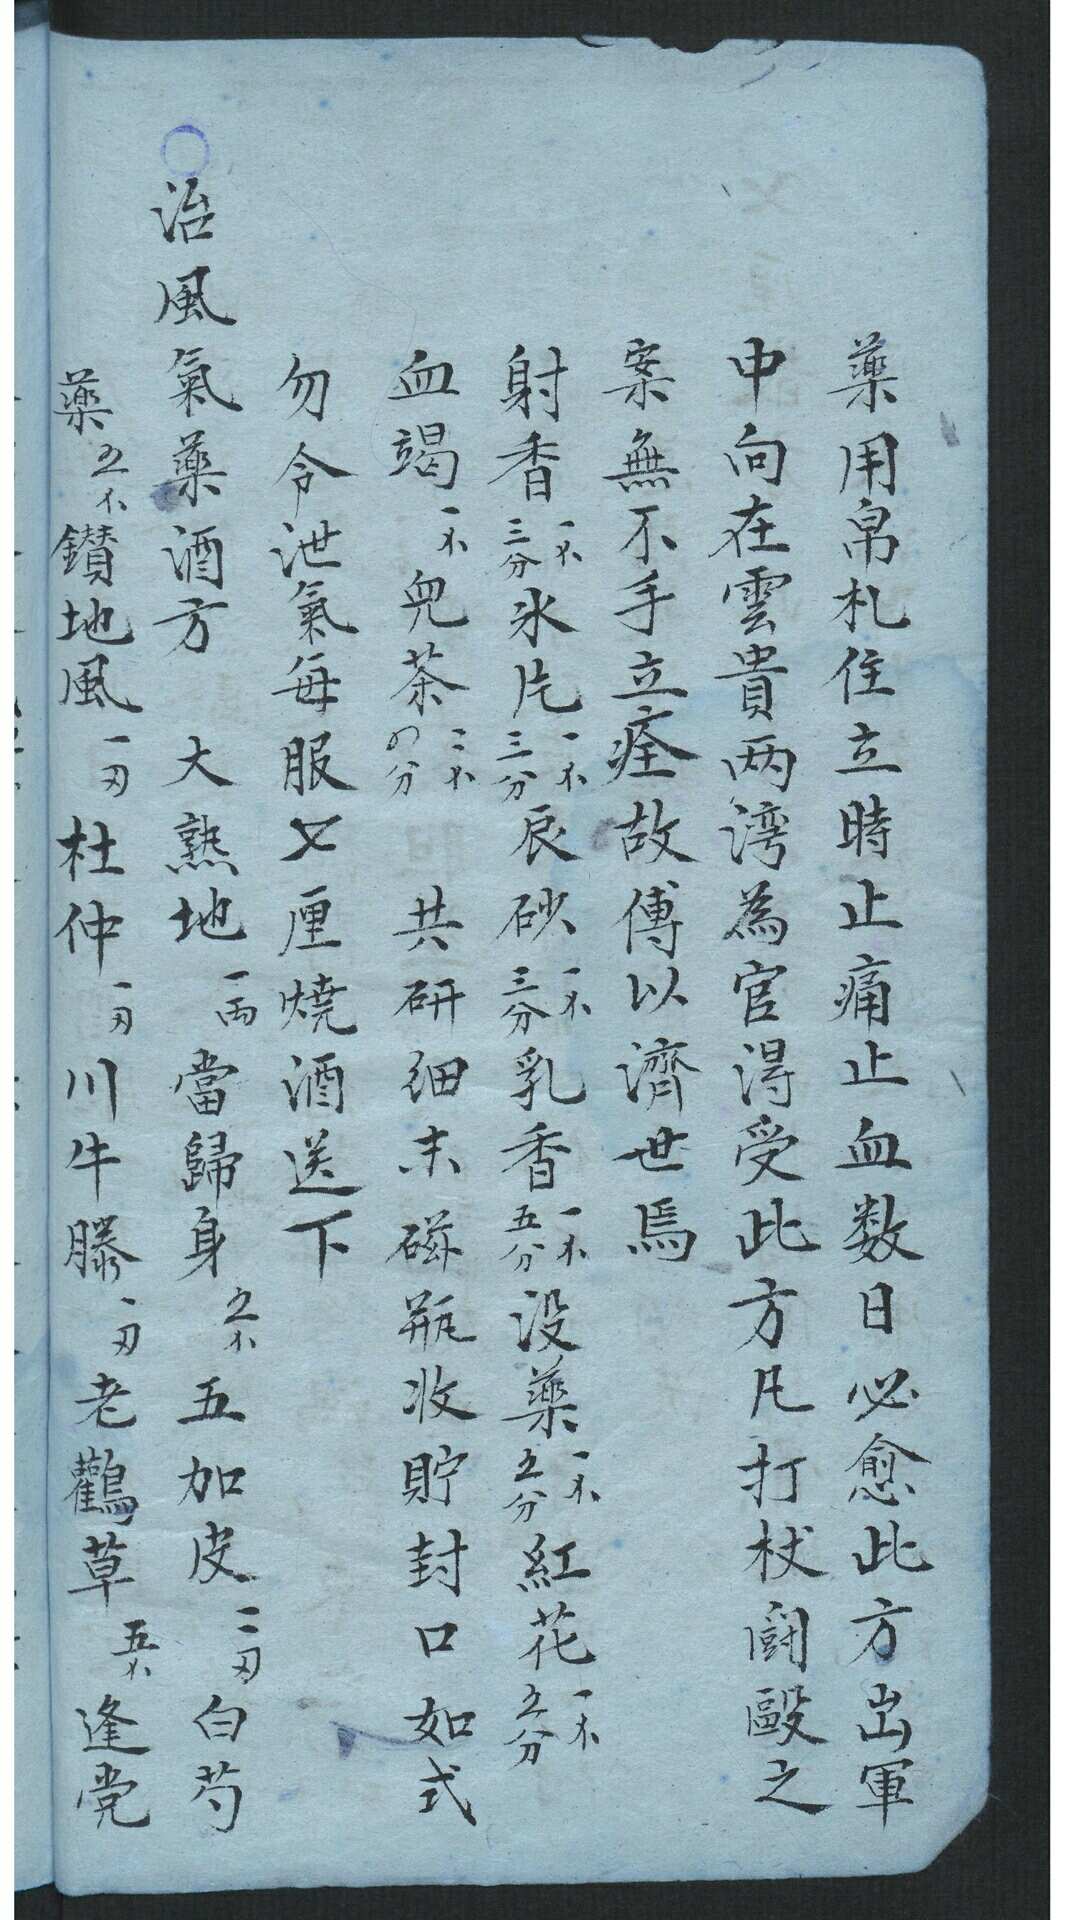 藥用帛札住立時止痛止血数日必愈此方出軍
中向在雲貴两湾為官淂受此方凡打杖鬪毆之
案無不手立痊故傅以濟世焉
射香一不三分氷片一不三分辰砂一不三分乳香一不五分没藥一不五分紅花一不五分
血竭一不兒茶二不四分 共研细末磁瓶收貯封口如式
勿令泄氣每服七厘燒酒送下
治風氣藥酒方 大熟地一兩當歸身五不五加皮二刃白芍
藥五不鑚地風一刃杜仲一刃川牛膝一刃老鸛草五不逢党